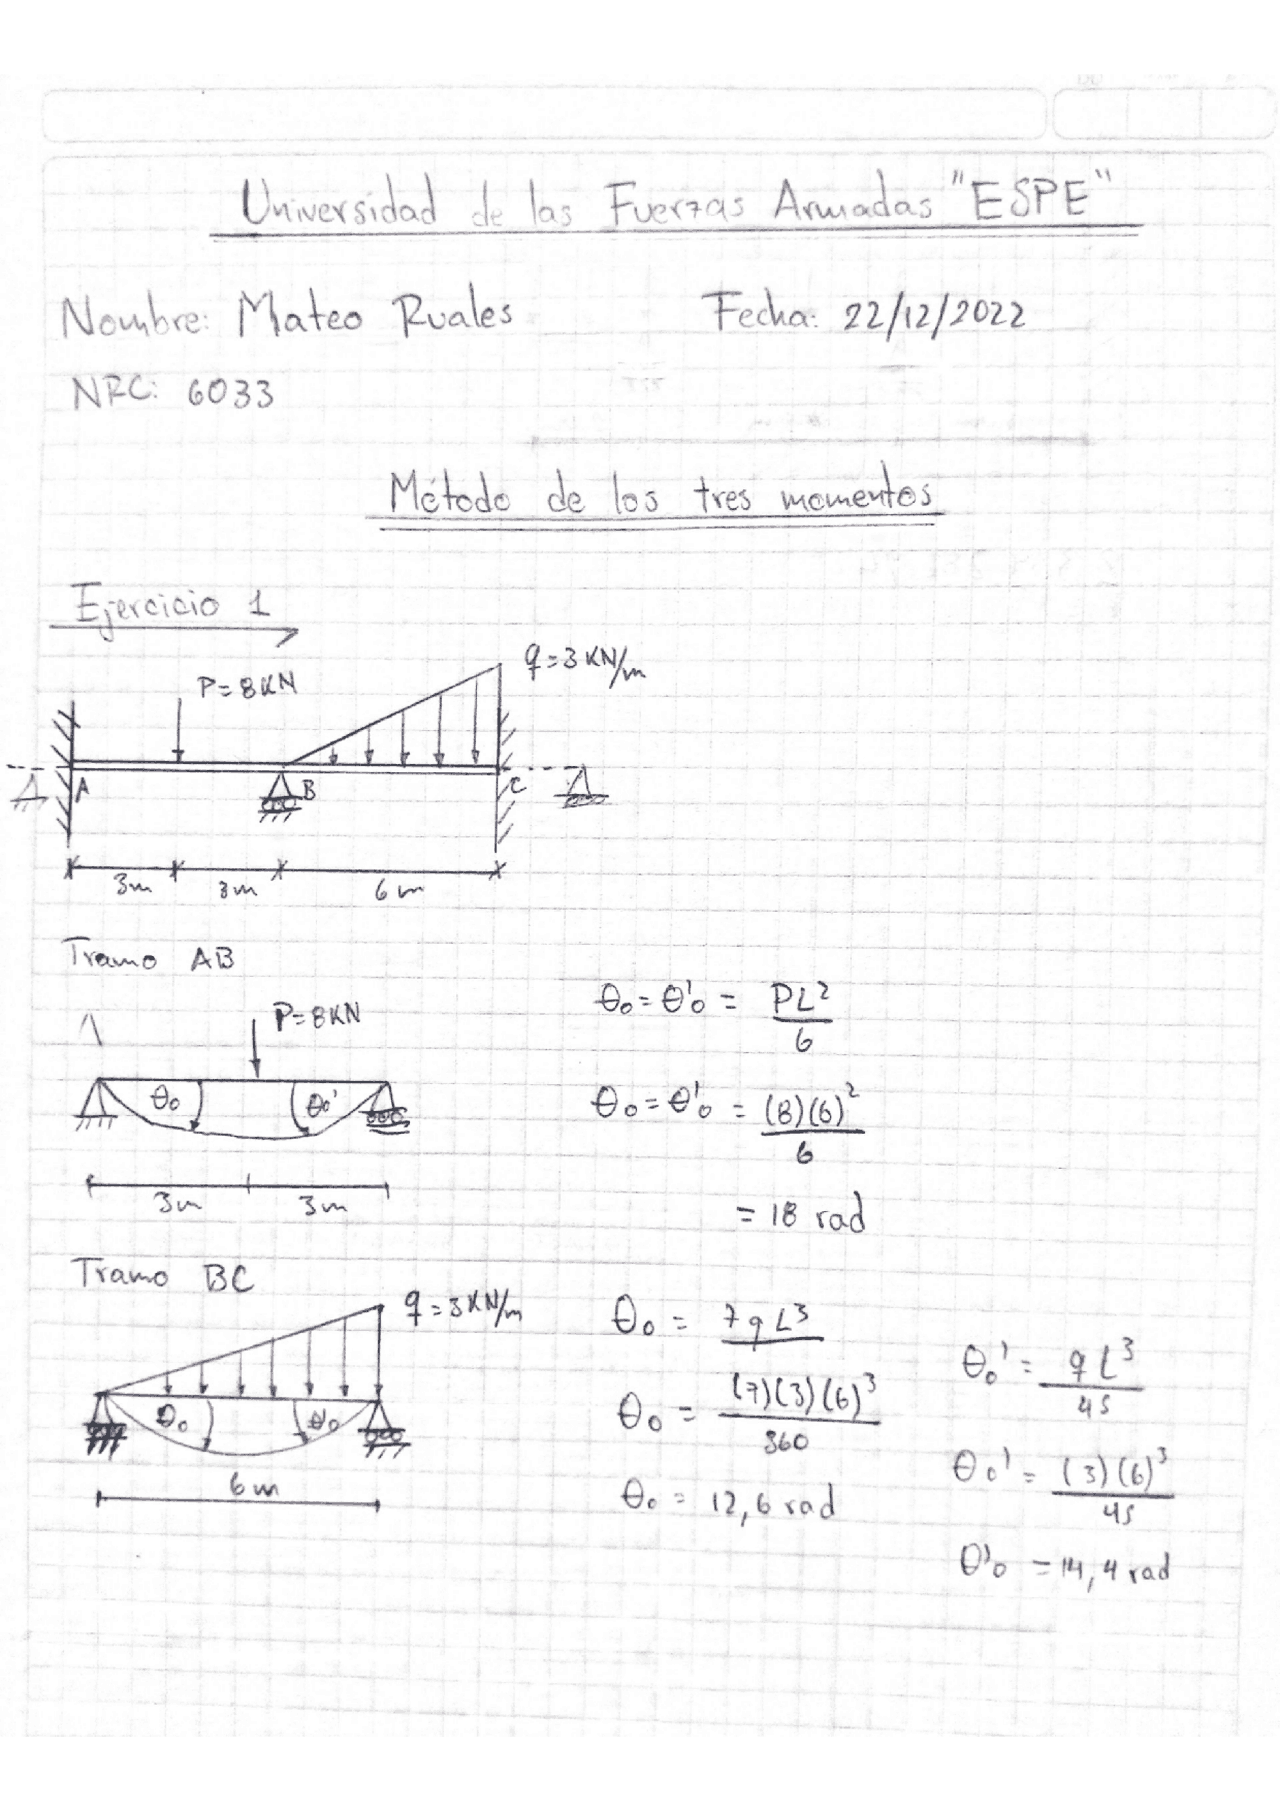 Universidad de las Fuerzas Armadas "ESPE"
Nombre: Mateo Ruales
Fecha: 22/12/2022
NRC: 6033
Método de los tres momentos
Ejercicio 1
q=3 KN/m
P=8KN
A
B
C
3m
3m
6m
Tramo AB
P=8KN
θo
θo'
3m
3m
θo = θ'o = PL²/6
θo = θ'o = (8)(6)²/6
= 18 rad
Tramo BC
q=3KN/m
θo
θ'o
6m
θo = 7qL³
θo = (7)(3)(6)³/360
θo = 12,6 rad
θo' = qL³/45
θo' = (3)(6)³/45
θ'o = 14,4 rad